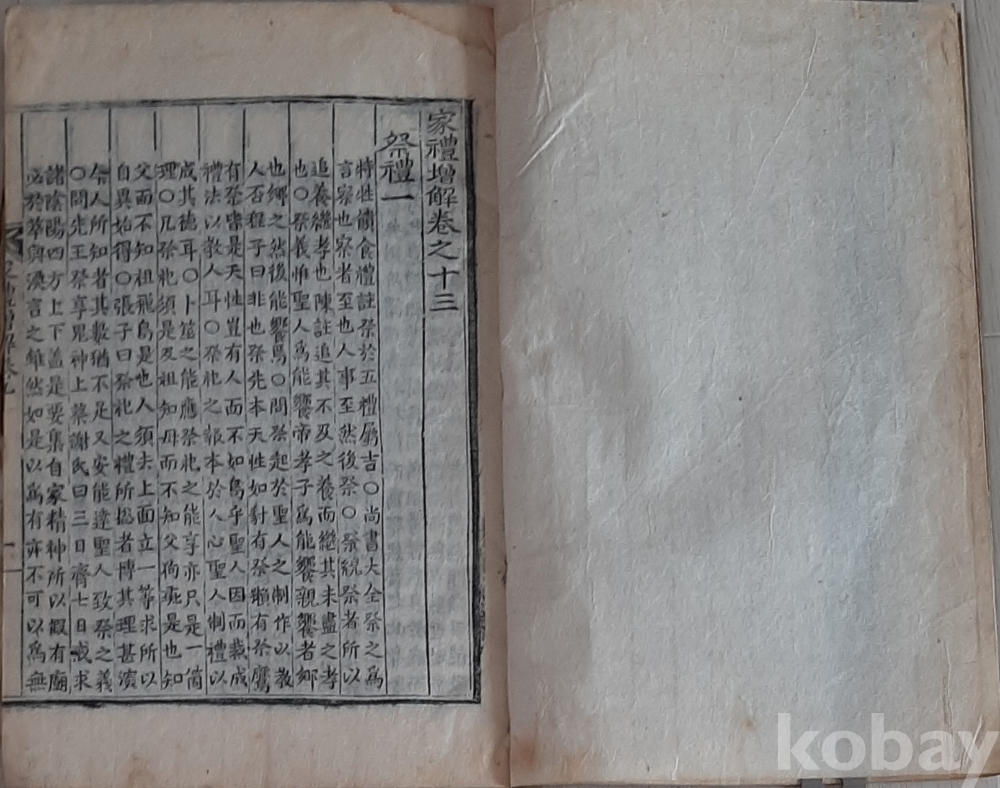 家禮增解卷之十三
祭禮一
特牲饋食禮註祭於五禮屬吉○尚書大全祭之爲
言察也察者至也人事至然後祭○祭統祭者所以
追養繼孝也陳註追其不及之養而繼其未盡之孝
也○祭義惟聖人爲能饗帝孝子爲能饗親饗者鄉
也鄉之然後能饗焉○問祭起於聖人之制作以教
人否程子曰非也祭先本天性如豺有祭獺有祭鷹
有祭皆是天性豈有人而不如鳥乎聖人因而裁成
禮法以教人耳○祭祀之報本於人心聖人制禮以
成其德耳○卜筮之能應祭祀之能享亦只是一箇
理○凡祭祀須是及祖知母而不知父狗彘是也知
父而不知祖飛鳥是也人須去上面立一等求所以
自異始得○張子曰祭祀之禮所摠者博其理甚深
今人所知者其數猶不足又安能達聖人致祭之義
○問先王祭享鬼神上蔡謝氏曰三日齊七日戒求
諸陰陽四方上下盖是要集自家精神所以假有廟
必於萃與渙言之雖然如是以爲有亦不可以爲無
kobay